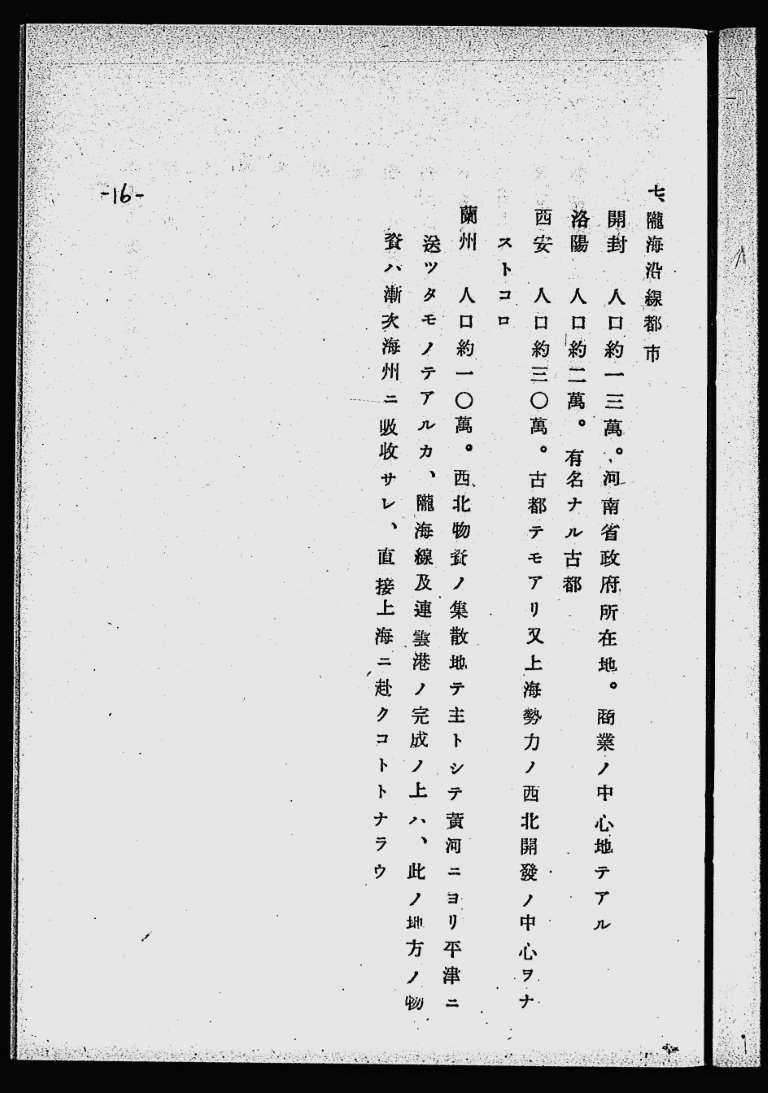 七、隴海沿線都市
開封　人口約一三萬。河南省政府所在地。商業ノ中心地テアル
洛陽　人口約二萬。有名ナル古都
西安　人口約三〇萬。古都テモアリ又上海勢力ノ西北開發ノ中心ヲナ
ストコロ
蘭州　人口約一〇萬。西北物資ノ集散地テ主トシテ黃河ニヨリ平津ニ
送ツタモノテアルカ、隴海線及連雲港ノ完成ノ上ハ、此ノ地方ノ物
資ハ漸次海州ニ吸收サレ、直接上海ニ赴クコトトナラウ
-16-